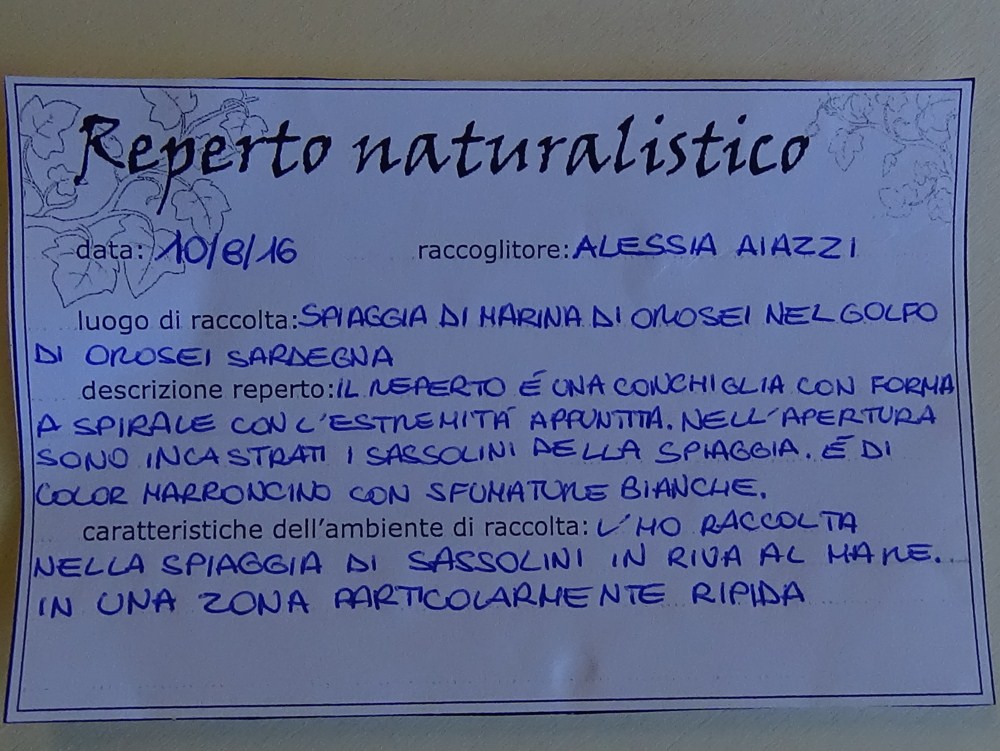 Reperto naturalistico
data: 10/8/16 raccoglitore: ALESSIA AIAZZI
luogo di raccolta: SPIAGGIA DI MARINA DI OROSEI NEL GOLFO
DI OROSEI SARDEGNA
descrizione reperto: IL REPERTO É UNA CONCHIGLIA CON FORMA
A SPIRALE CON L'ESTREMITÁ APPUNTITA. NELL'APERTURA
SONO INCASTRATI I SASSOLINI DELLA SPIAGGIA. É DI
COLOR MARRONCINO CON SFUMATURE BIANCHE.
caratteristiche dell'ambiente di raccolta: L'HO RACCOLTA
NELLA SPIAGGIA DI SASSOLINI IN RIVA AL MARE.
IN UNA ZONA PARTICOLARMENTE RIPIDA